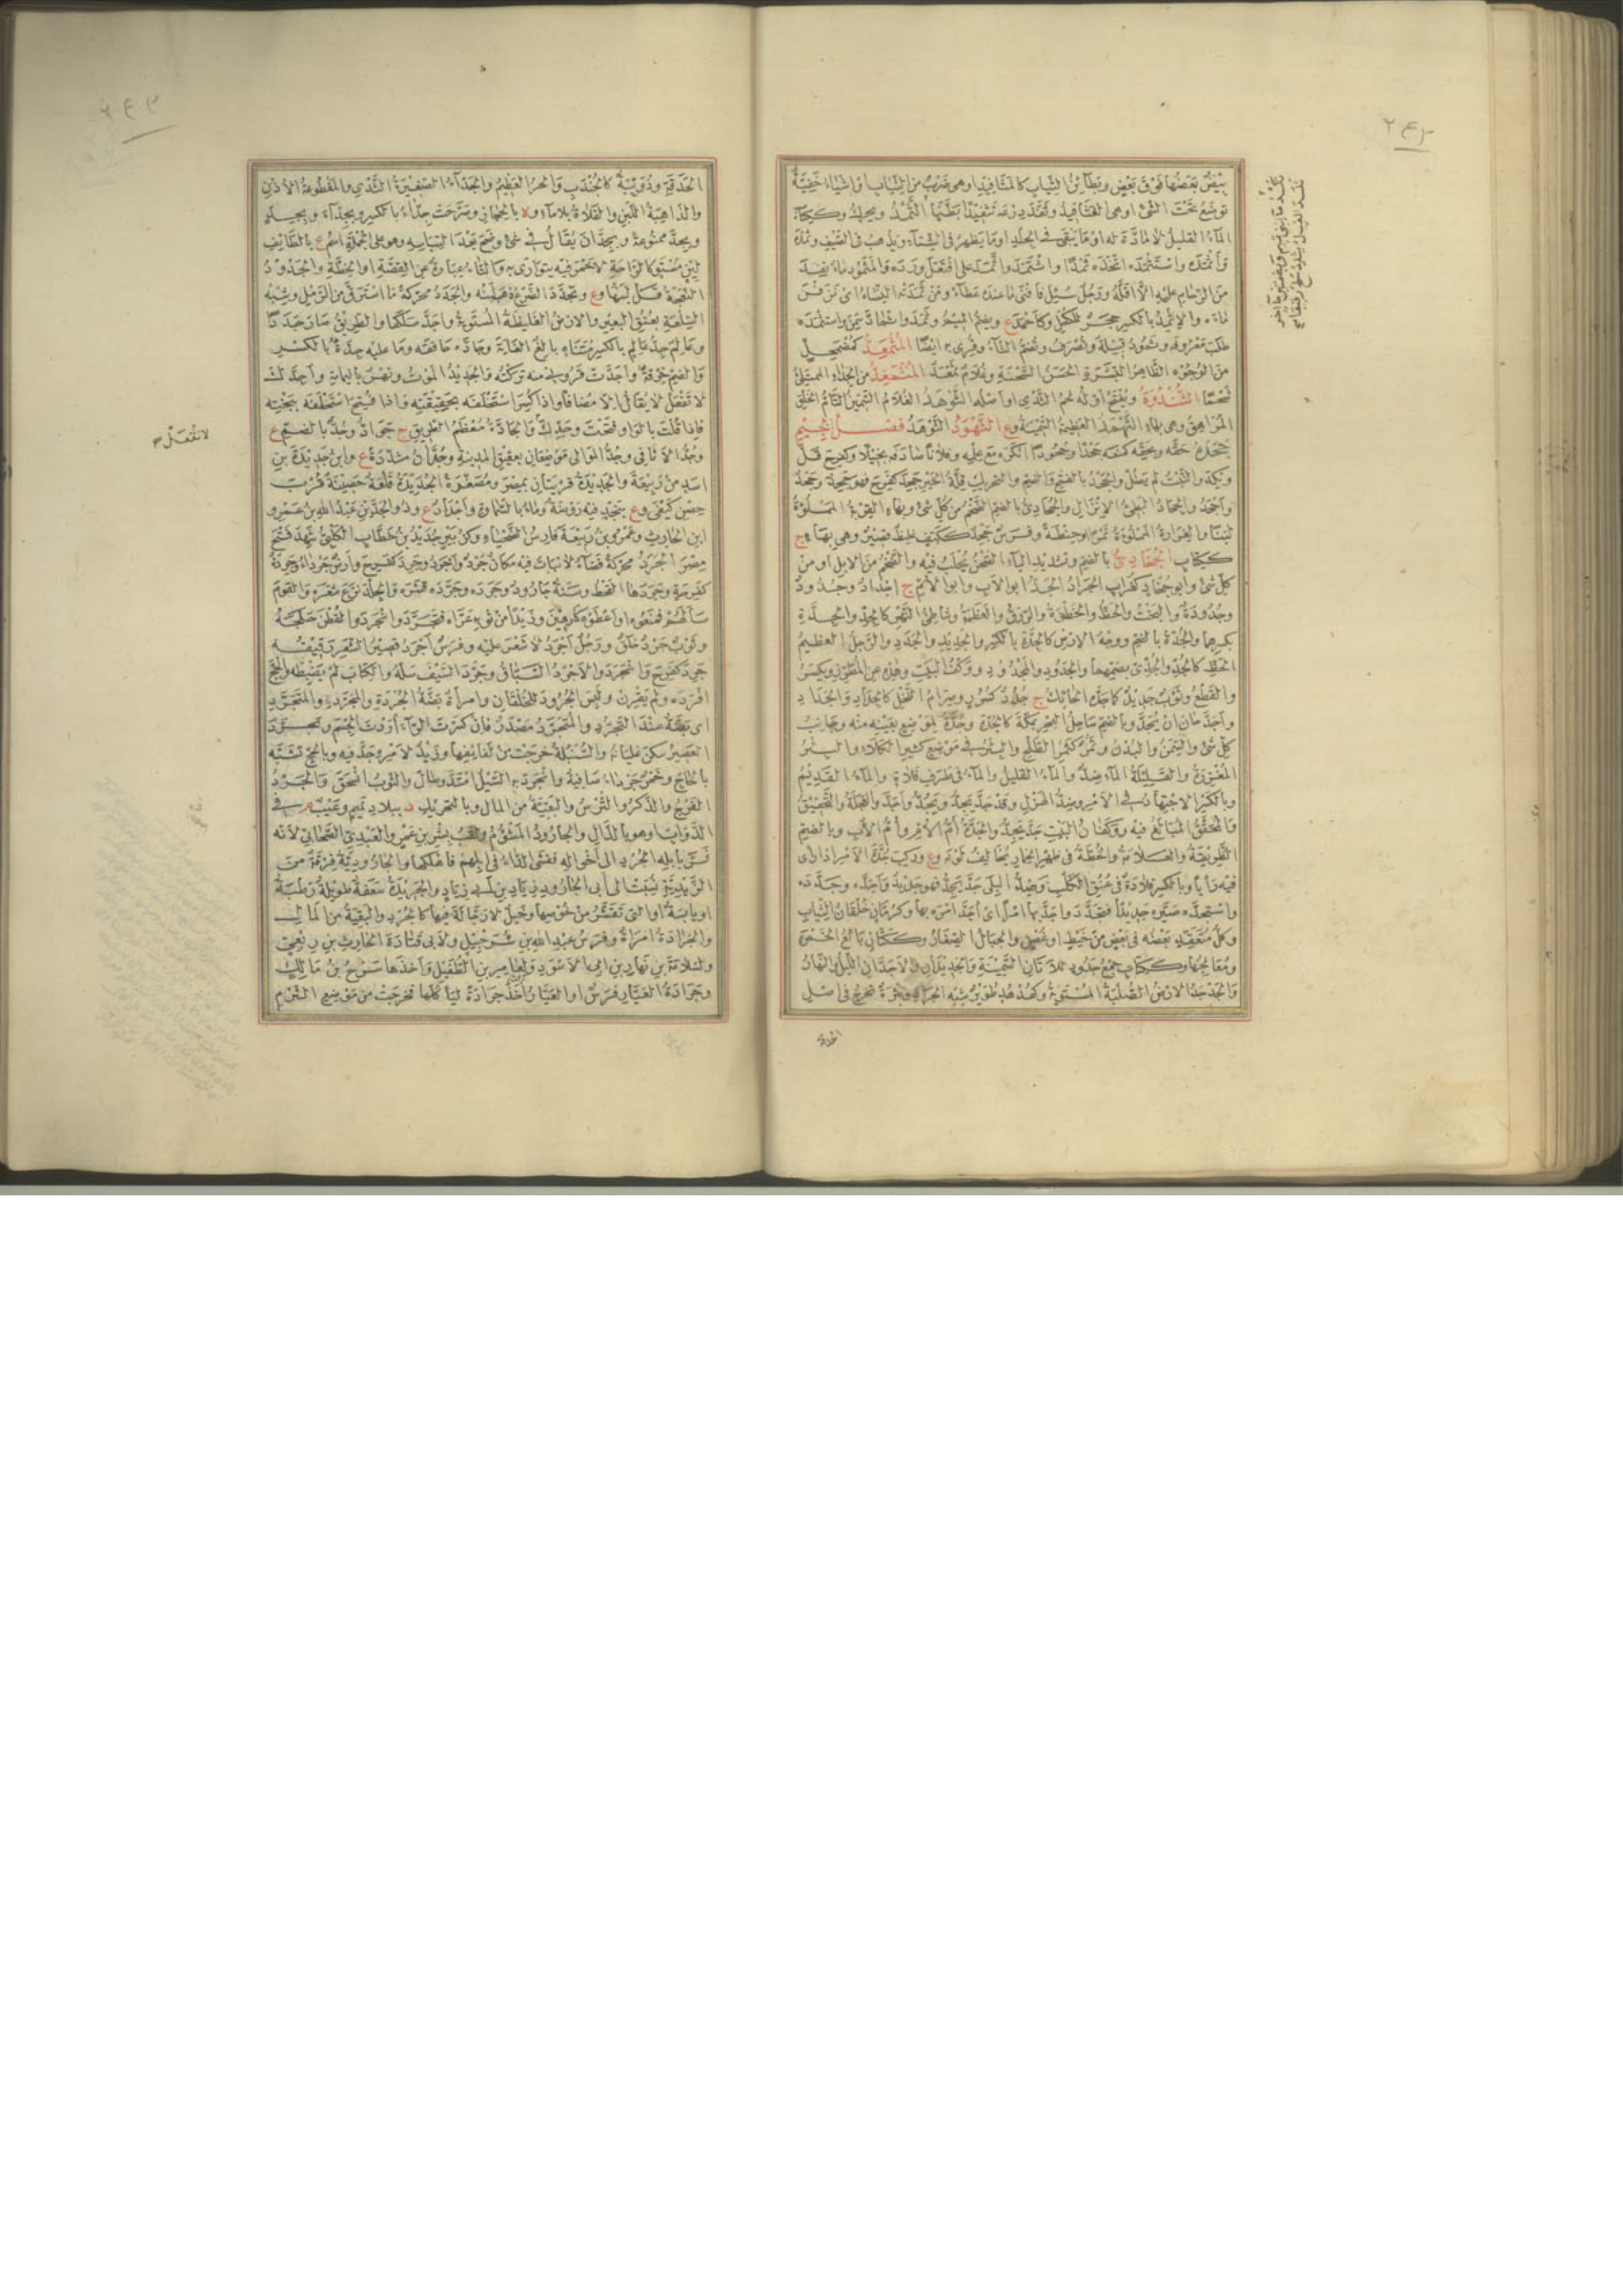 ٢٤٢
بيض بعضها فوق بعض وبطائن الثياب كالمثافيد او هي ضرب من الثياب او اشياء خفية
توضع تحت الشئ او هي الفثافيد وثفد درعه تثفيدا بطنها الثمد ويحرك وككتاب
الماء القليل لا مادة له او ما يبقى في الجلد او ما يظهر في الشتاء ويذهب في الصيف وثمده
واثمده واستثمده اتخذه ثمدا واثتمد واثمد على افتعل ورده والمثمود ماء نفد
من الزحام عليه الا اقله ورجل سئل فافنى ما عنده عطاء ومن ثمدته النساء اى نزفن
ماءه والاثمد بالكسر حجر للكحل وكاحمد ع وبضم الميم وثمد واثماد سمن واستثمده
طلب معروفه وثمود قبيلة ويصرف وتضم الثاء وقرى به ايضا المثمعد كمضمحل
من الوجوه الظاهر البشرة الحسن السحنة وغلام ثمعد المثمغد من الجداء الممتلئ
شحما الثندوة ويفتح اوله لحم الثدى او اصله الثوهد الغلام السمين التام الخلق
المراهق وهى بهاء الثهمد العظيمة السمينة وع الثهود الثوهد فصل الجيم
جحده حقه وبحقه كمنعه جحدا وجحودا انكره مع علمه وفلانا صادفه بخيلا وكفرح قل
ونكد والنبت لم يطل والجحد بالفتح والضم والتحريك قلة الخير جحد كفرح فهو جحد وجحد
واجحد والجحاد البطئ الانزال والجحادى بالضم الضخم من كل شئ وبهاء القربة المملوة
لبنا والغرارة المملوة تمرا او حنطة وفرس جحد ككتف غليظ قصير وهى بهاء ج
ككتاب الجخادى بالضم وتشديد الياء الصحن يحلب فيه والضخم من الابل او من
كل شئ وابو جخاد كغراب الجراد الجد ابو الاب وابو الام ج اجداد وجدود
وجدودة والبخت والحظ والحظوة والرزق والعظمة وشاطئ النهر كالجد والجدة
بكسرهما والجدة بالضم ووجه الارض كالجدة بالكسر والجديد والجدد والرجل العظيم
الحظ كالجد والجدى بضمهما والجديد والمجدود ووكف البيت وهذه عن المطرز ويكسر
والقطع وثوب جديد كما جده الحائك ج جدد كسرر وصرام النخل كالجداد والجداد
واجد حان ان يجد وبالضم ساحل البحر بمكة كالجدة وجدة لموضع بعينه منه وجانب
كل شئ والسمن والبدن وثمر كثمر الطلح والبئر في موضع كثير الكلاء والبئر
المغزرة والقليلة الماء ضد والماء القليل والماء فى طرف فلاة والماء القديم
وبالكسر الاجتهاد في الامر وضد الهزل وقد جد يجد ويجد واجد والعجلة والتحقيق
والمحقق المبالغ فيه ووكفان البيت جد يجد والجدة ام الام وام الاب وبالضم
الطريقة والعلامة والخطة فى ظهر الحمار تخالف لونه وع وركب جدة الامر اذا راى
فيه رأيا وبالكسر قلادة فى عنق الكلب وضد البلى جد يجد فهو جديد واجده وجدده
واستجده صيره جديدا فتجدد واجد بها امرا اى اجد امره بها وكرمان خلقان الثياب
وكل متعقد بعضه فى بعض من خيط او غصن والجبال الصغار وككتان بائع الخمر
ومعالجها وككتاب جمع جدود للاتان السمينة والجديدان والاجدان الليل والنهار
والجدجد الارض الصلبة المستوية وكهدهد طوير شبه الجراد وبثرة تخرج فى اصل
الحدقة
٢٤٣
الحدقة ودويبة كالجندب والحر العظيم والجداء الصغيرة الثدى والمقطوعة الاذن
والذاهبة اللبن والفلاة بلا ماء وة بالحجاز وصرحت جداء بالكسر وبجداء وبجد
وبجد ممنوعة وبجدان يقال في شئ وضح بعد التباسه وهو على الجملة اسم ع بالطائف
لين مستو كالراحة لا خمر فيه يتوارى به والتاء عبارة عن القصة او الخطة والجدود
النعجة قل لبنها وع وتجدد الضرع ذهب لبنه والجدد محركة ما استرق من الرمل وشبه
السلعة بعنق البعير والارض الغليظة المستوية واجد سلكها والطريق صار جددا
وعالم جد عالم بالكسر متناه بالغ الغاية وجاده حاققه وما عليه جدة بالكسر
والضم خرقة واجدت قرونى منه تركته والجديد الموت ونهر باليمامة واجدك
لا تفعل لا يقال الا مضافا واذا كسر استحلفه بحقيقته واذا فتح استحلفه ببخته
فاذا قلت بالواو فتحت وجدك والجادة معظم الطريق ج جواد وجد بالضم ع
وجد الاثافى وجد الموالى موضعان بعقيق المدينة وجدان مشددة ع وابن جديلة بن
اسد من ربيعة والجديدة قريتان بمصر ومصغرة الجديدة قلعة حصينة قرب
حصن كيفى وع بنجد فيه روضة وماء بالسماوة واجداد ع وذو الجدين عبد الله بن عمرو
ابن الحارث وعمرو بن ربيعة فارس الضحياء وكزبير جديد بن خطاب الكلبى شهد فتح
مصر الجرد محركة فضاء لا نبات فيه مكان جرد واجرد وجرد كفرح وارض جرداء وجردة
كفرحة وجردها القحط وسنة جارود وجرده وجرده قشره والجلد نزع شعره والقوم
سألهم فمنعوه او اعطوه كارهين وزيدا من ثوبه عراه فتجرد وانجرد والقطن حلجه
وثوب جرد خلق ورجل اجرد لا شعر عليه وفرس اجرد قصير الشعر رقيقه
جرد كفرح وانجرد والاجرد السباق وجرد السيف سله والكتاب لم يضبطه والحج
افرده ولم يقرن ولبس الجرود للخلقان وامرأة بضة الجردة والمجرد والمتجرد
اى بضة عند التجرد والمتجرد مصدر فان كسرت الراء اردت الجسم وتجرد
العصير سكن غليانه والسنبلة خرجت من لفائفها وزيد لامره جد فيه وبالحج تشبه
بالحاج وخمر جرداء صافية وانجرد به السيل امتد وطال والثوب انسحق والجرد
الفرج والذكر والترس والبقية من المال وبالتحريك د ببلاد تميم وعيب م في
الدواب او هو بالذال والجارود المشؤم ولقب بشر بن عمرو العبدى الصحابى لانه
فر بابله الجرد الى اخواله ففشى الداء في ابلهم فاهلكها والجارودية فرقة من
الزيدية نسبت الى ابى الجارود زياد بن ابى زياد والجريدة سعفة طويلة رطبة
او يابسة او التى تقشر من خوصها وخيل لا رجالة فيها كالجرد والبقية من المال
والجرادة امرأة وفرس عبد الله بن شرحبيل ولابى قتادة الحارث بن ربعى
ولسلامة بن نهار بن ابى الاسود ولعامر بن الطفيل واخذها سرح بن مالك
وجرادة العيار فرس او العيار اخذ جرادة ليأكلها فخرجت من موضع الثرم
لا تفعل